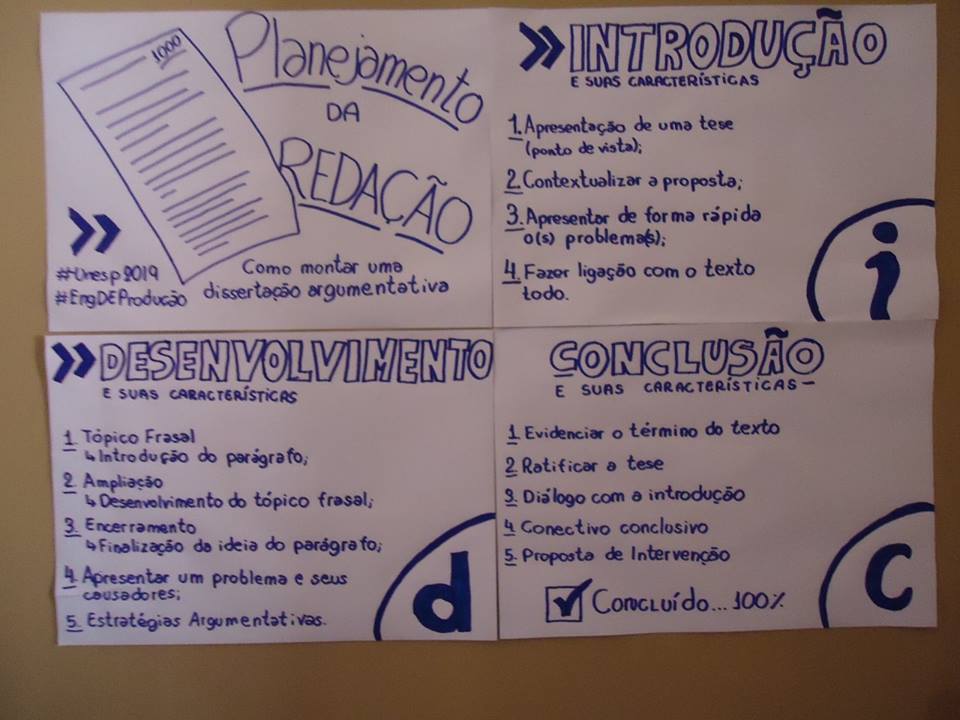 1000
Planejamento
DA
REDAÇÃO
Como montar uma
dissertação argumentativa
#Unesp2019
#EngDEProdução
INTRODUÇÃO
E SUAS CARACTERÍSTICAS
1. Apresentação de uma tese
(ponto de vista);
2. Contextualizar a proposta;
3. Apresentar de forma rápida
o(s) problema(s);
4. Fazer ligação com o texto
todo.
i
DESENVOLVIMENTO
E SUAS CARACTERÍSTICAS
1 Tópico Frasal
↳ Introdução do parágrafo;
2 Ampliação
↳ Desenvolvimento do tópico frasal;
3. Encerramento
↳ Finalização da ideia do parágrafo;
4. Apresentar um problema e seus
causadores;
5. Estratégias Argumentativas.
d
CONCLUSÃO
E SUAS CARACTERÍSTICAS-
1 Evidenciar o término do texto
2 Ratificar a tese
3. Diálogo com a introdução
4 Conectivo conclusivo
5. Proposta de Intervenção
Concluído... 100%
c